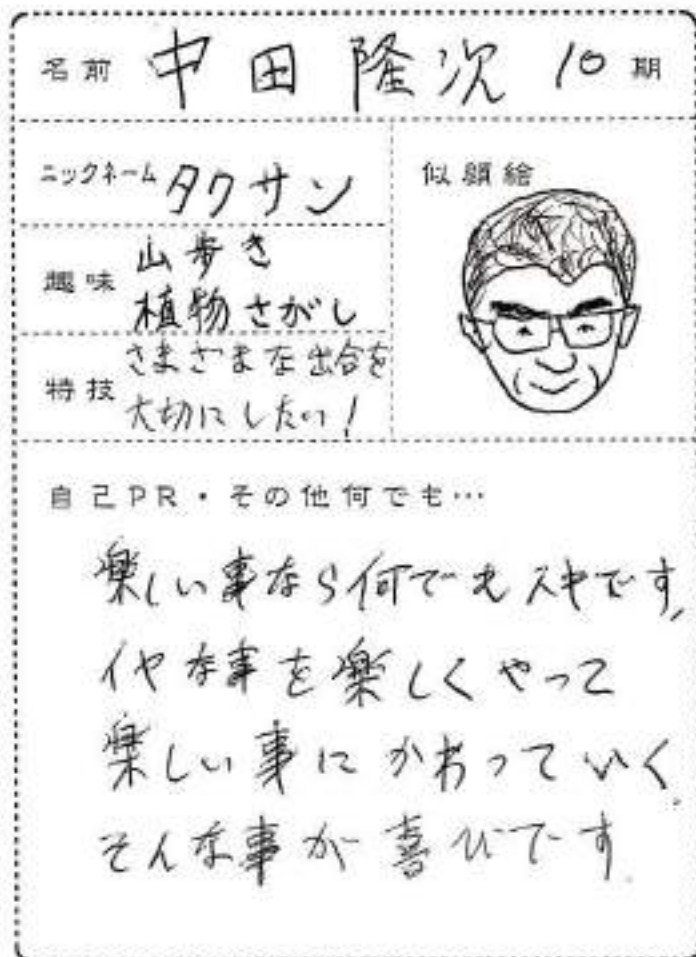 名前 中田隆次 10期
ニックネーム タクサン
似顔絵
趣味 山歩き
植物さがし
特技 さまざまな出合を
大切にしたい!
自己PR・その他何でも…
楽しい事なら何でもスキです,
イヤな事を楽しくやって
楽しい事にかわっていく.
そんな事が喜びです.